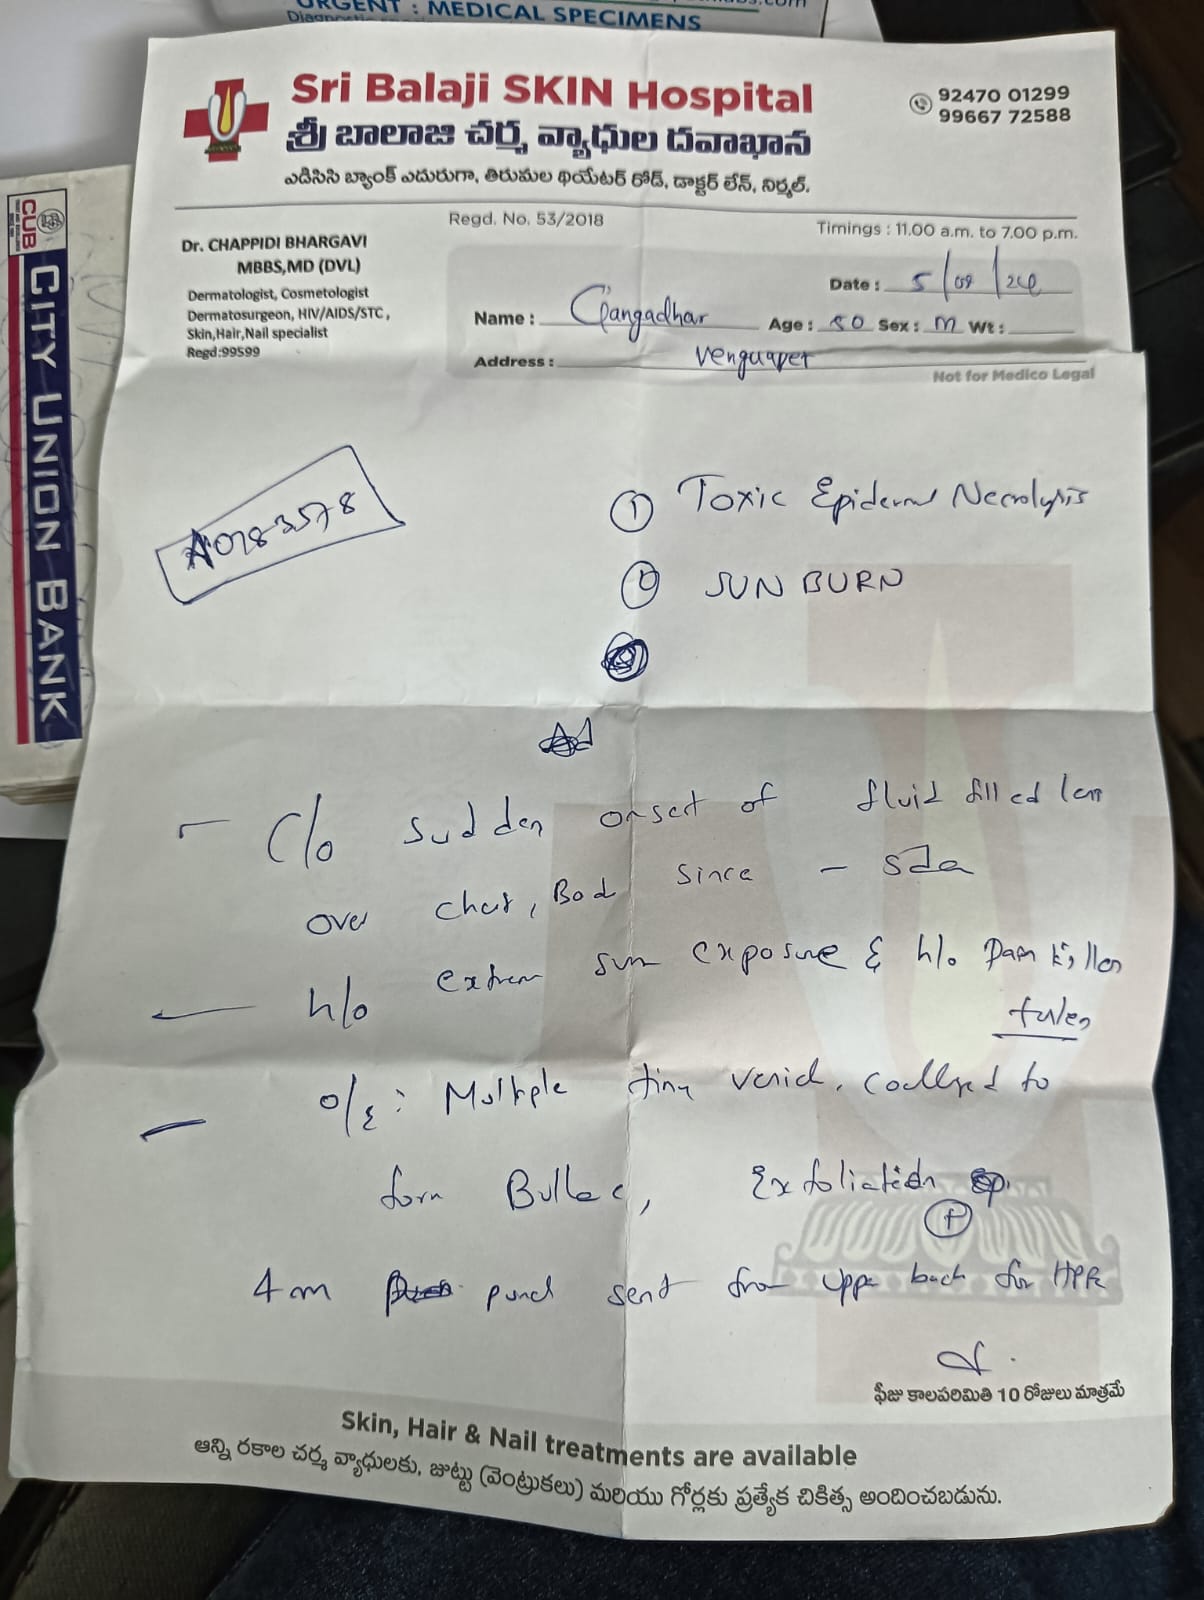 URGENT : MEDICAL SPECIMENS
CUB
CITY UNION BANK
Sri Balaji SKIN Hospital
శ్రీ బాలాజి చర్మ వ్యాధుల దవాఖాన
ఎడిసిసి బ్యాంక్ ఎదురుగా, తిరుమల థియేటర్ రోడ్, డాక్టర్ లేన్, నిర్మల్.
92470 01299
99667 72588
Regd. No. 53/2018
Timings : 11.00 a.m. to 7.00 p.m.
Dr. CHAPPIDI BHARGAVI
MBBS,MD (DVL)
Dermatologist, Cosmetologist
Dermatosurgeon, HIV/AIDS/STC ,
Skin,Hair,Nail specialist
Regd:99599
Date : 5/09/24
Name : Gangadhar Age : 50 Sex : M Wt :
Address :
Not for Medico Legal
A0783578
1 Toxic Epidermal Necrolysis
2 SUN BURN
C/o sudden onset of fluid filled
over chest, since -
h/o extreme sun exposure & h/o Pain killer
taken
O/E : Multiple tiny
form Bullae, Exfoliation
+
4 m punch sent from upper back for HPE
ఫీజు కాలపరిమితి 10 రోజులు మాత్రమే
Skin, Hair & Nail treatments are available
ఆన్ని రకాల చర్మ వ్యాధులకు, జుట్టు (వెంట్రుకలు) మరియు గోర్లకు ప్రత్యేక చికిత్స అందించబడును.